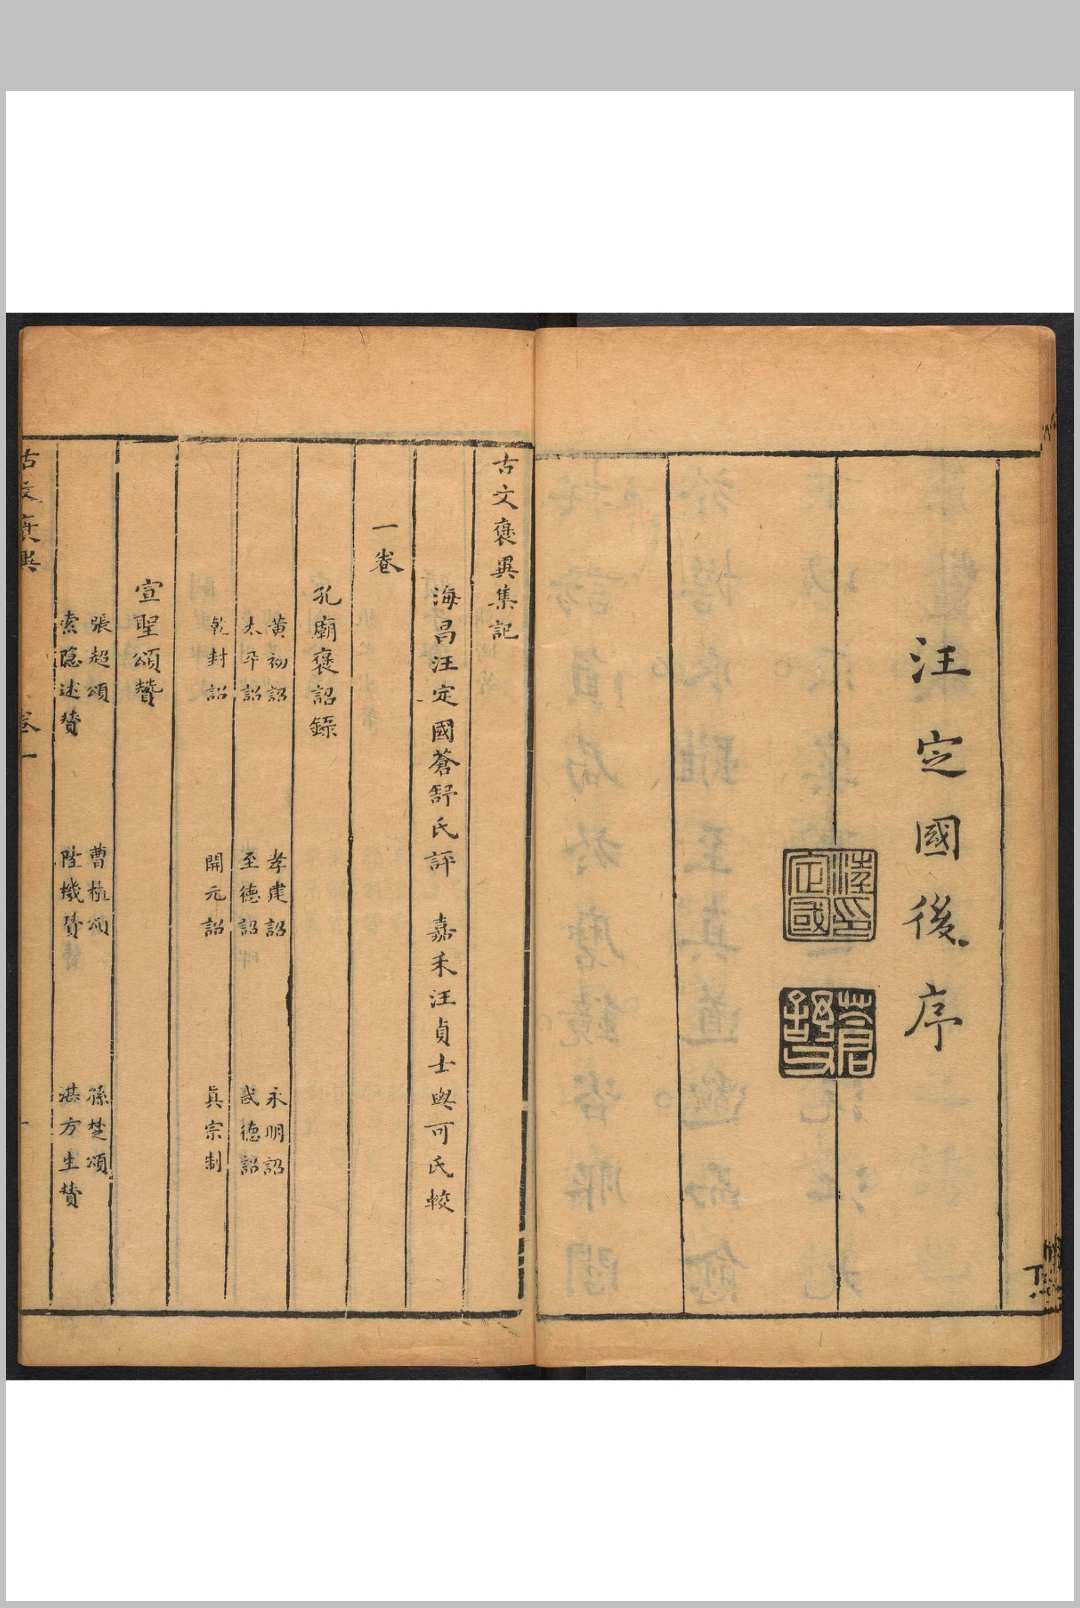 汪定國後序
汪印定國
蒼舒
古文褒異集記
海昌汪定國蒼舒氏評 嘉禾汪貞士與可氏較
一卷
孔廟褒詔錄
黃初詔 孝建詔 永明詔
太平詔 至德詔 武德詔
乾封詔 開元詔 真宗制
宣聖頌贊
張超頌 曹植頌 孫楚頌
索隐述贊 陸機贊 湛方生贊
古文褒異 卷一